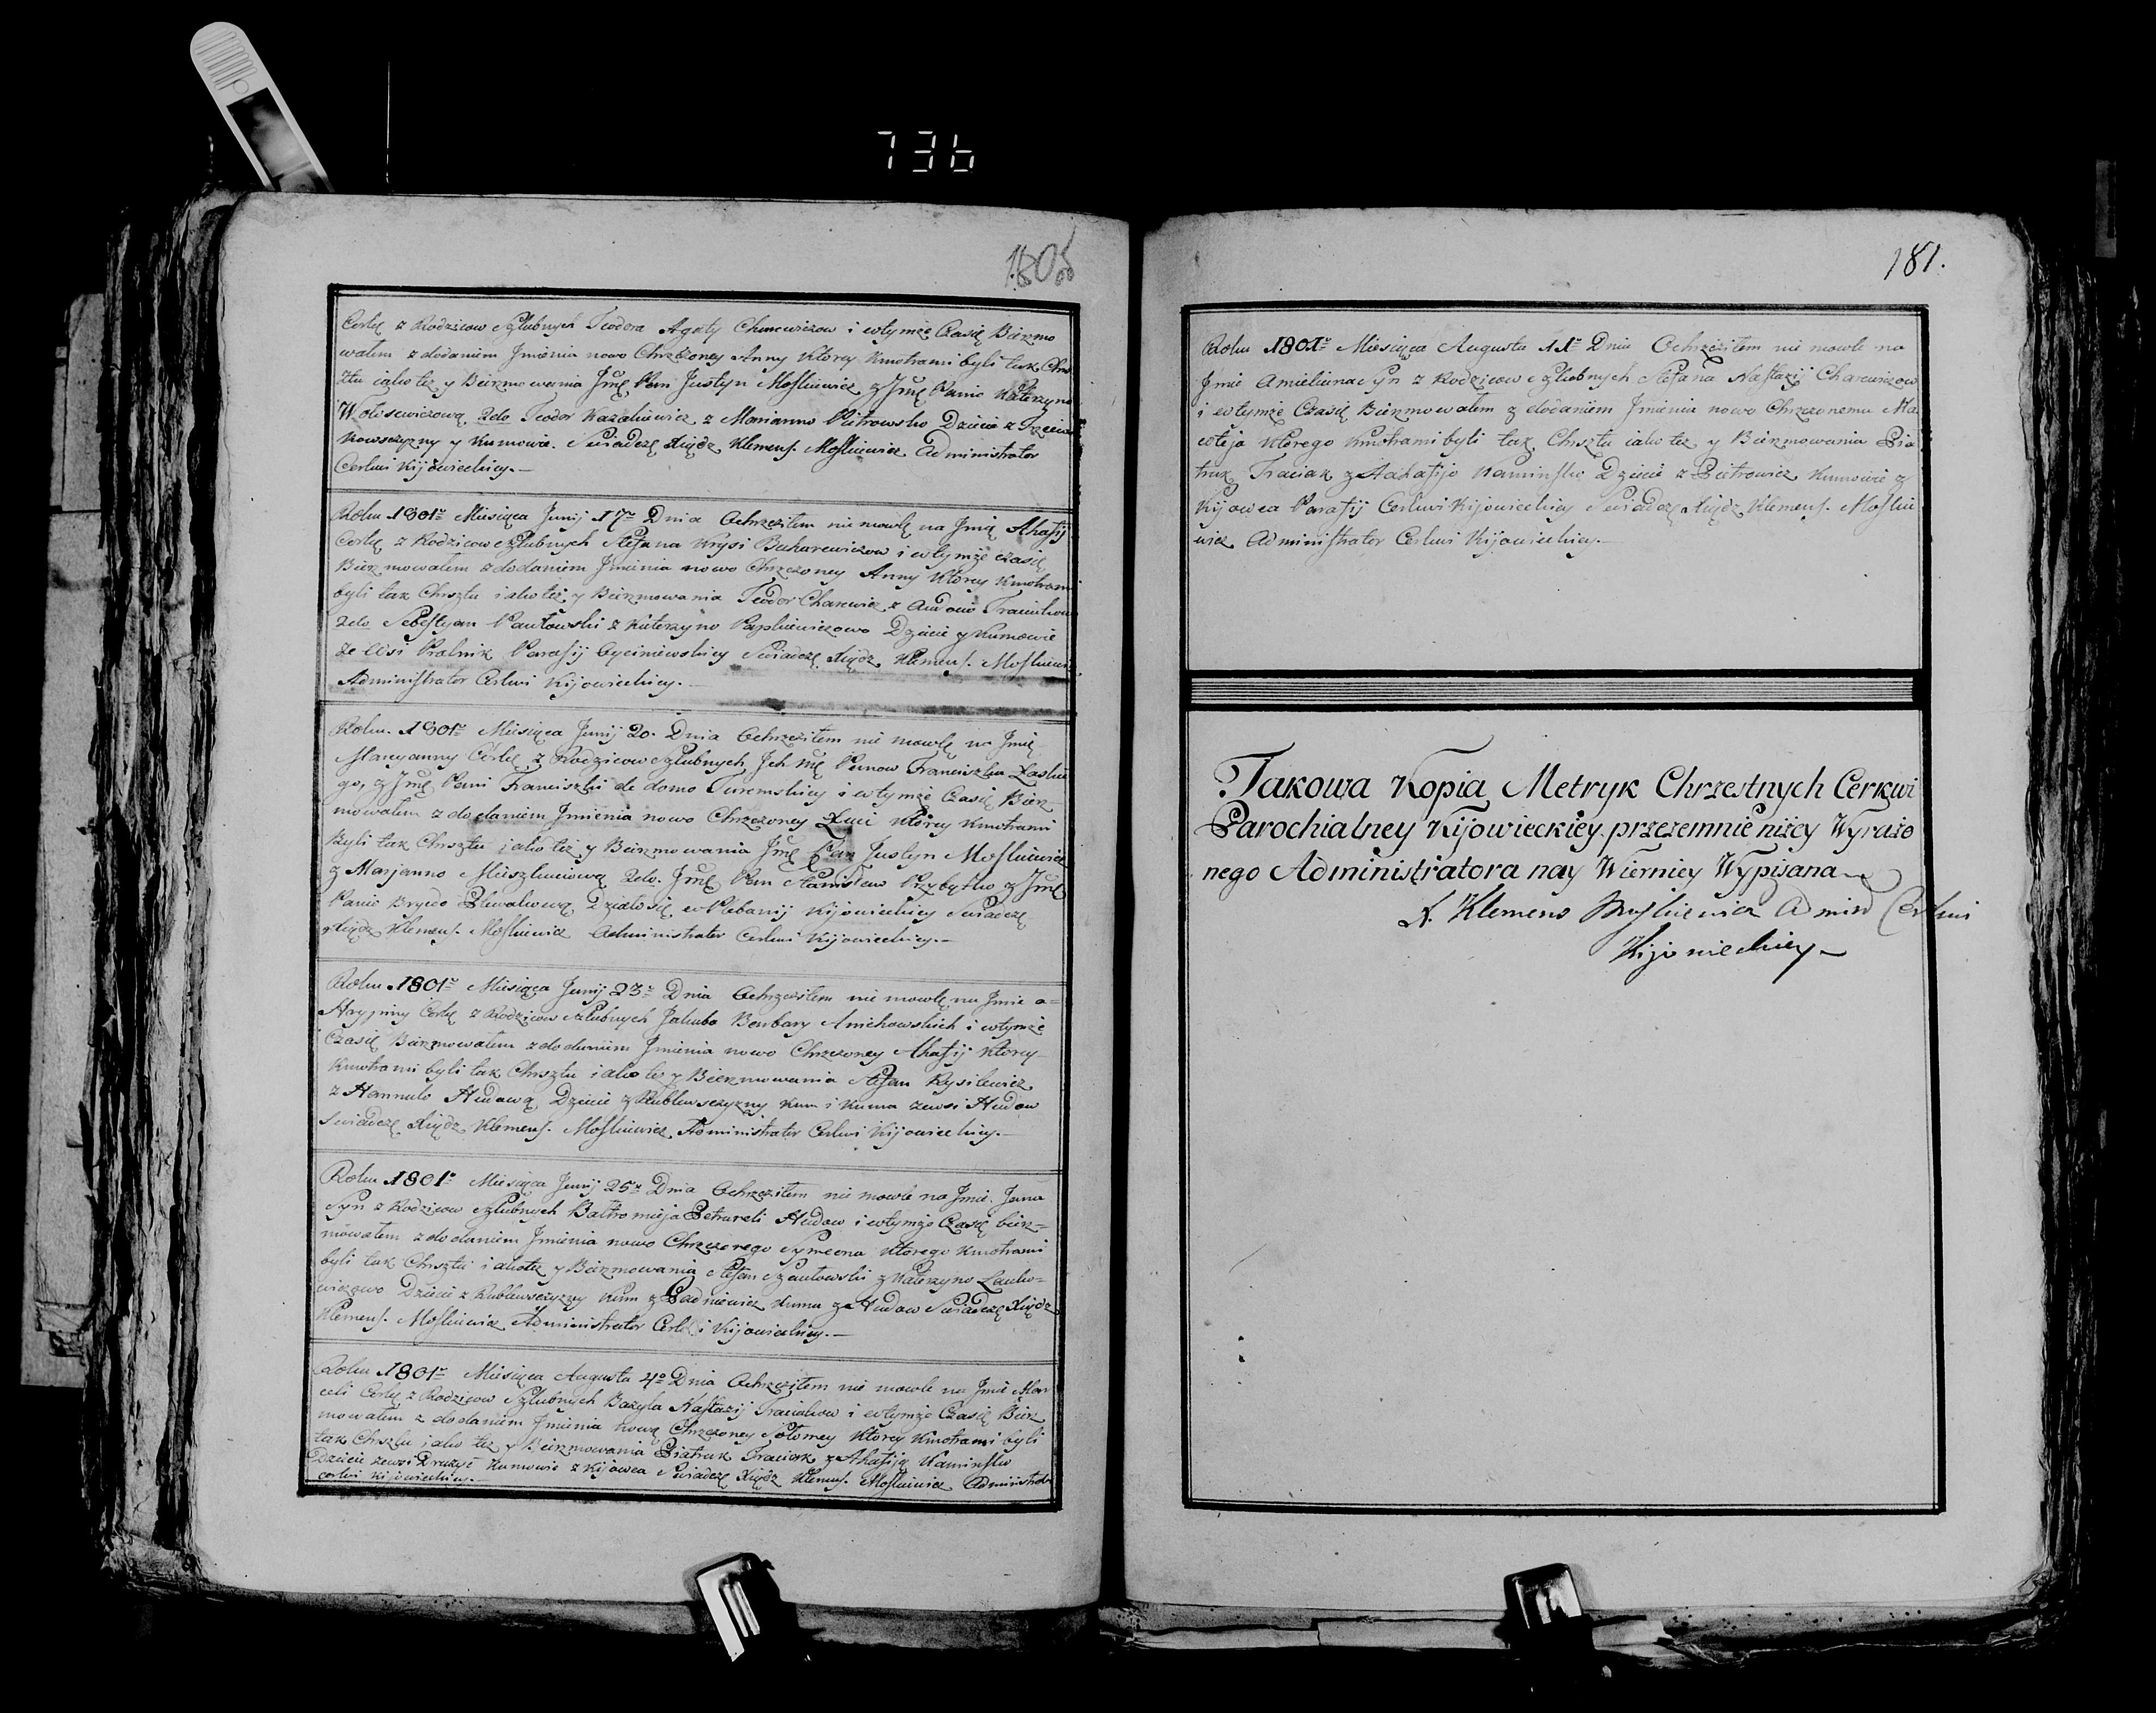 736
180
Corkę z Rodzicow Szlubnych Teodora Agaty Charewiczow i wtymże Czasię Bierzmo
wałem z dodaniem Jmienia nowo Chrzczoney Anny Ktorey Kmotrami byli tak Chrz
ztu iako też y Bierzmowania Jmę Pan Justyn Moskiewicz z Jmę Panio Katerzyno
Wolisewiczową, 2do Teodor Kazakiewicz z Marianno Pietrowsko Dziecie z
kowszczyzny y Kumowie. Swiadczę Xiądz Klemens. Moskiewicz Administrator
Cerkwi Kijowieckiey.—
Roku 1801o Miesiąca Junij 17o Dnia Ochrzciłem nie mowlę na Jmię Ahafij
Corkę z Rodzicow Szlubnych Stefana Krysi Bucharewiczow i wtymże czasię
Bierzmowałem z dodaniem Jmienia nowo Chrzczoney Anny Ktorey Kmotrami
byli tak Chrsztu iako też y Bierzmowania Teodor Charewicz z Audocio
2do Sebestyan Pautowski z Katerzyno Dziecie y Kumowie
ze wsi Pralnik Parafij Swiadczę Xiądz Klemens. Moskiewicz
Administrator Cerkwi Kijowieckiey.—
Roku. 1801o Miesiąca Junij 20. Dnia Ochrzciłem nie mowlę na Jmię
Maryanny Córkę z Rodzicow Szlubnych Jch Mę Panow Franciszka
go, z Jmę Pani Franciszki de domo Turemskiey i wtymże Czasię Bierz
mowałem z dodaniem Jmienia nowo Chrzczoney Łucii Ktorey Kmotrami
Byli tak Chrsztu iako też y Bierzmowania Jmę Pan Justyn Moskiewicz
z Marjanno 2do. Jmę Pan Stanisław Przybytko z Jmę
Panio Brygido Plewakową Działosię w Plebanij Kijowieckiey Swiadczę
Xiądz Klemens. Moskiewicz Administrator Cerkwi Kijowieckiey.—
Roku 1801o Miesiąca Junij 23o Dnia Ochrzciłem nie mowlę na Jmie a=
Hrypiny Corkę z Rodzicow Szlubnych Jakuba Barbary i wtymże
Czasię Bierzmowałem z dodaniem Jmienia nowo Chrzczoney Ahafij Ktorey
Kmotrami byli tak Chrsztu iako też y Bierzmowania Stefan Kysilewicz
z Hannulo Hudową Dziecie z Kublowszczyzny Kum i Kuma zewsi Hudow
Swiadczę Xiądz Klemens. Moskiewicz Administrator Cerkwi Kijowieckiey.—
Roku 1801o Miesiąca Junij 25o Dnia Ochrzciłem nie mowle na Jmie. Jana
Syn z Rodzicow Szlubnych Bałtromieja Petruneli Hudow i wtymże Czasię bierz=
mowałem z dodaniem Jmienia nowo Chrzczonego Symeona Ktorego Kmotrami
byli tak Chrsztu iakoteż y Bierzmowania Stefan Szautowski z Katerzyno Lawko=
wiczowo Dziecie z Kublowszczyzny Kum z Kuma z Hudow Swiadczę Xiądz
Klemens. Moskiewicz Administrator Cerkwi Kijowieckiey.—
Roku 1801o Miesiąca Augusta 4o Dnia Ochrzciłem nie mowle na Jmie Mar
celi Corkę z Rodzicow Szlubnych Bazyla Nastazij Traciakow i wtymże Czasię Bierz
mowałem z dodaniem Jmienia nowo Chrzczoney Sołomey Ktorey Kmotrami byli
tak Chrsztu iako też y Bierzmowania Piatruk Traciak z Ahafiją Kaminsko
Dziecie zewsi Kumowie z Kijowca Swiadczę Xiądz Klemens. Moskiewicz Administrator
Cerkwi Kijowieckiey.—
181.
Roku 1801o Miesiąca Augusta 11o Dnia Ochrzciłem nie mowle na
Jmie Amieliana Syn z Rodzicow Szlubnych Stefana Nastazij Charewiczow
i wtymże Czasię Bierzmowałem z dodaniem Jmienia nowo Chrzczonemu Ma
wteja Ktorego Kmotrami byli tak Chrsztu iako też y Bierzmowania Pia
truk Traciak z Aahafijo Kaminsko Dziecie z Pietrowicz Kumowie z
Kijowca Parafij Cerkwi Kijowieckiey Swiadczę Xiądz Klemens. Moskie
wicz Administrator Cerkwi Kijowieckiey.—
Takowa Kopia Metryk Chrzestnych Cerkwi
Parochialney Kijowieckiey przezemnie niżey Wyrażo
nego Administratora nay Wierniey Wypisana
X. Klemens Moskiewicz Admin Cerkwi
Kijowieckiey—